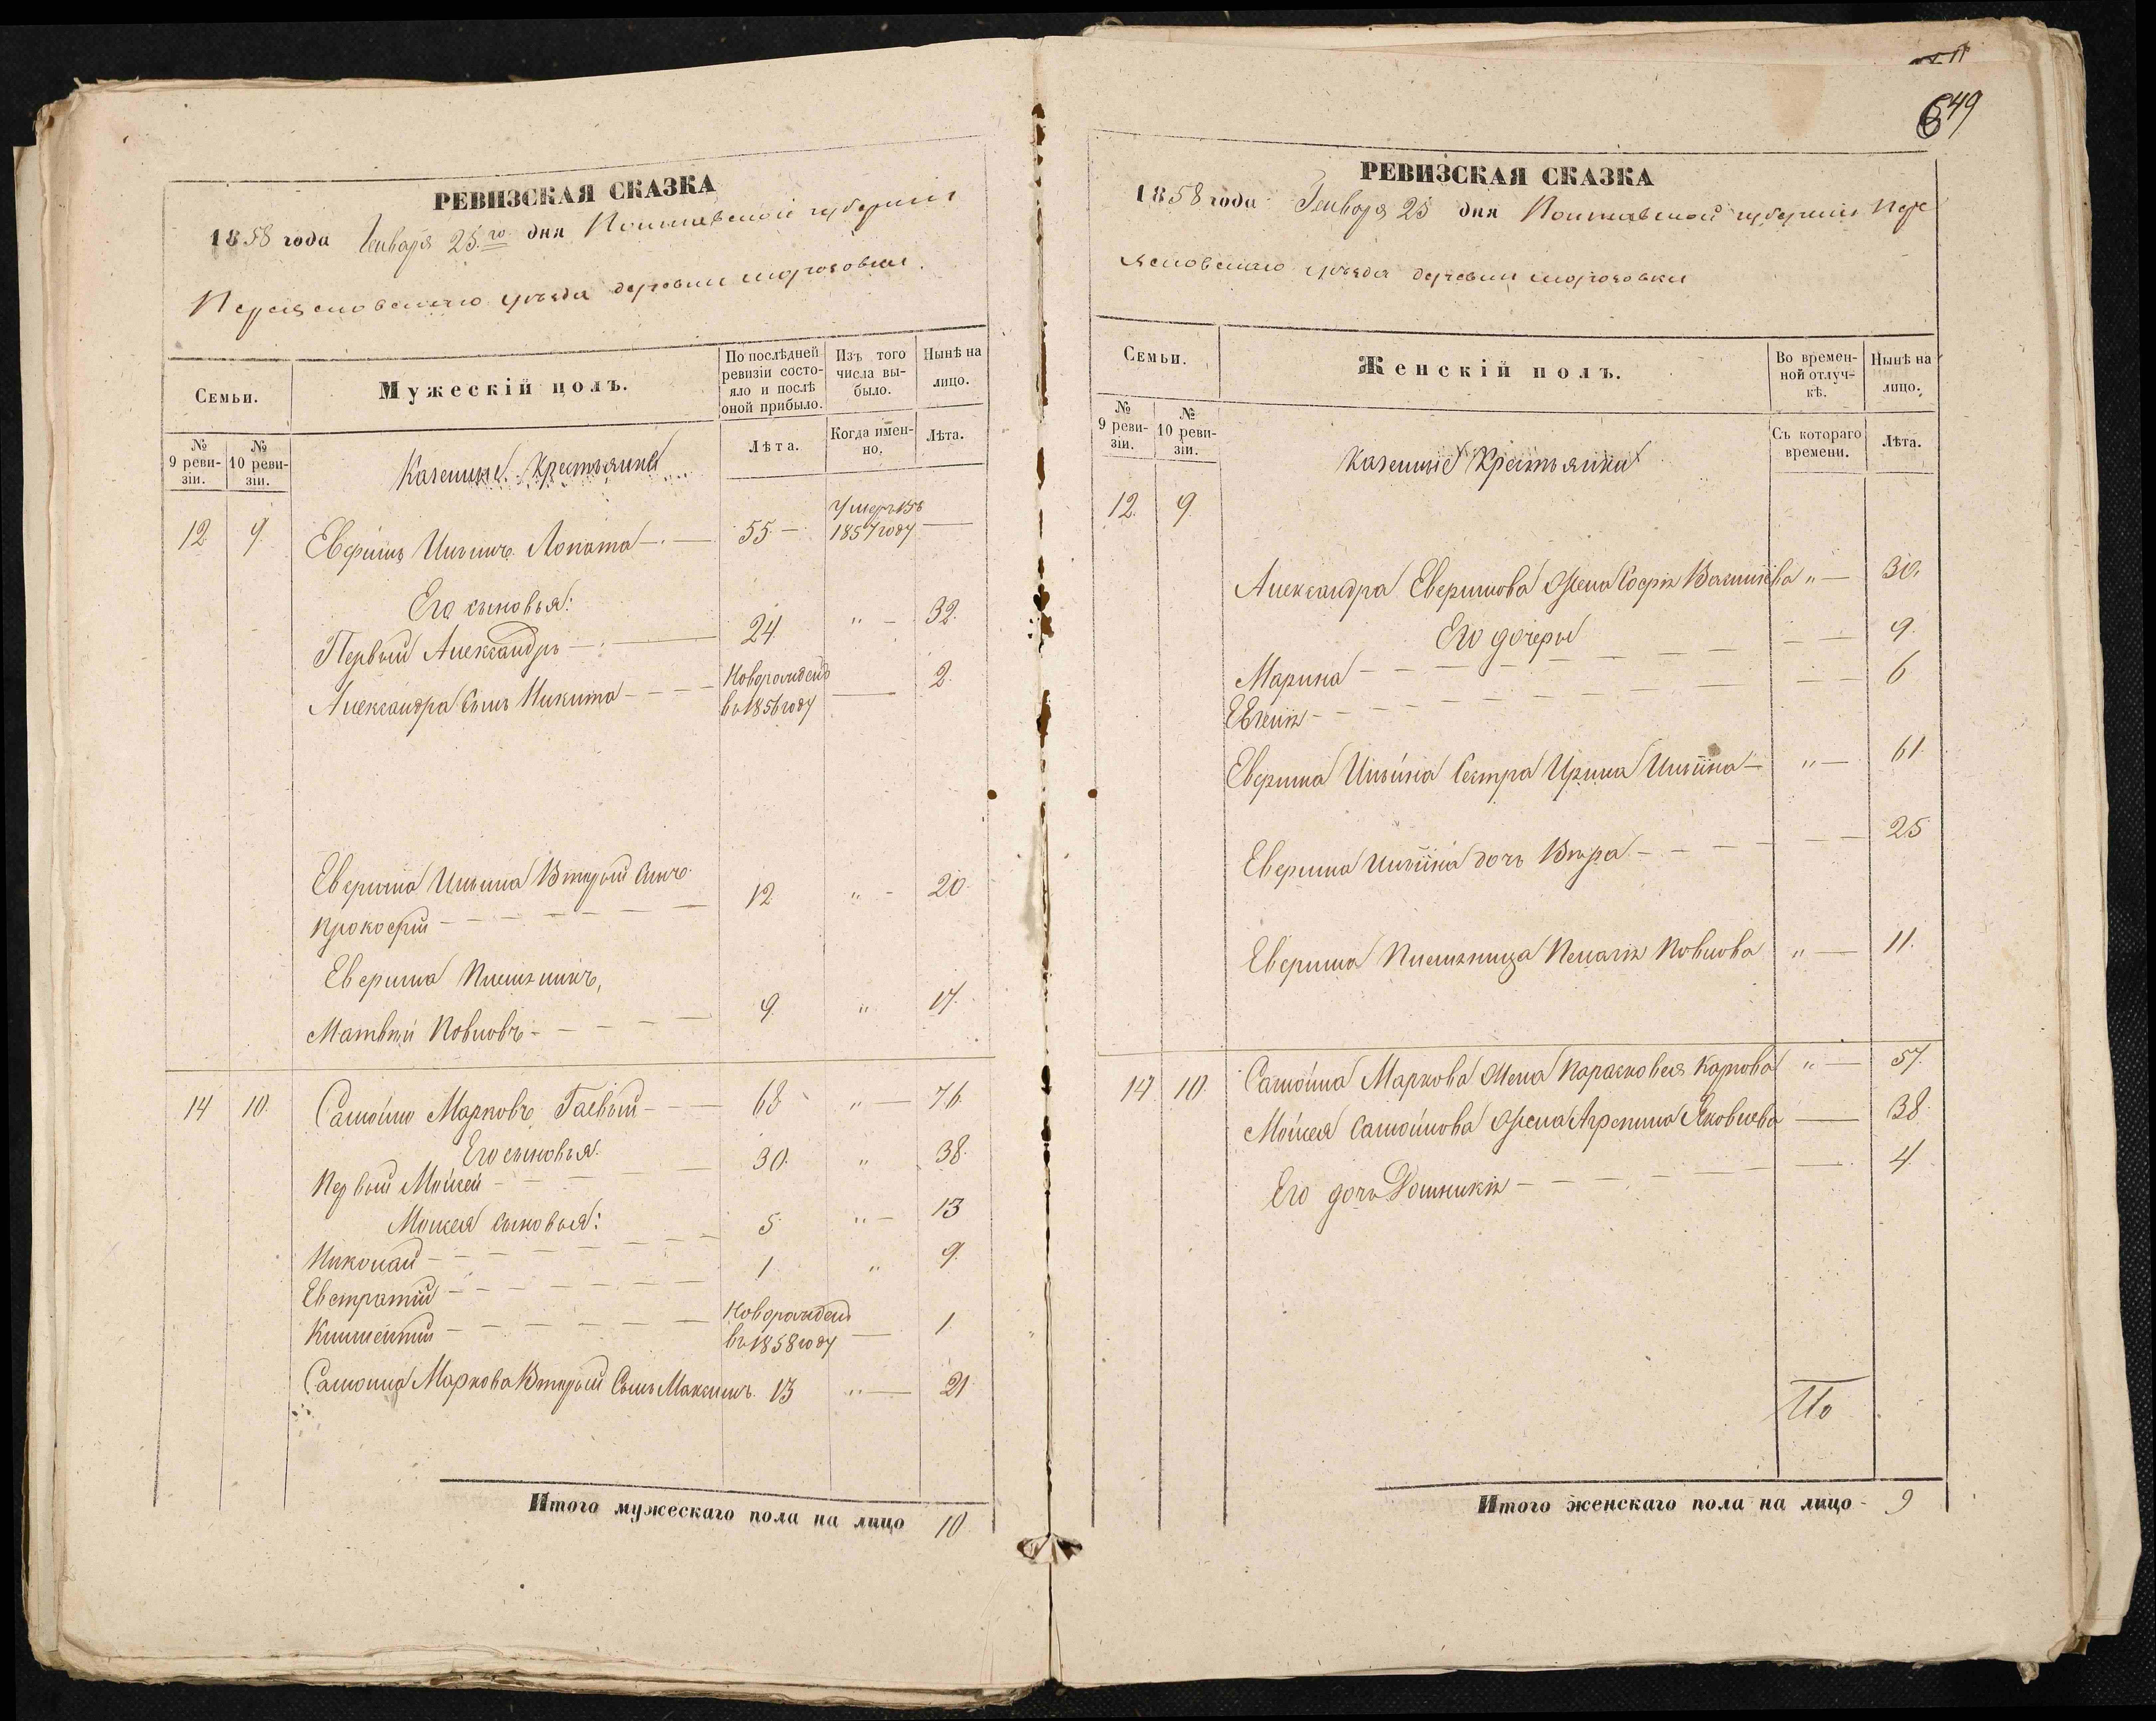 649
РЕВИЗСКАЯ СКАЗКА
1858 года Января 25го дня Полтавской губерніи
Переяславского уѣзда деревни Морозовки.
Семьи.
Мужескій полъ.
По послѣдней ревизіи состояло и послѣ оной прибыло.
Изъ того числа выбыло.
Нынѣ на лицо.
№ 9 ревизіи.
№ 10 ревизіи.
Лѣта.
Когда именно.
Лѣта.
Казенные Крестьяне
12 9 Ефимъ Ильинъ Лопата 55 Умеръ въ 1857 году
Его сыновья:
Первый Александръ 24 " 32.
Александра Сынъ Никита Новорожденъ въ 1856 году 2.
Ильина Вторый Сынъ
Прокофій 12 " 20.
Племянникъ,
Матвѣй Повловъ 9. " 17.
14 10. Самойло Марковъ Гаевый 68 " 76
Его сыновья.
Первый Мойсей 30. " 38.
Мойсея сыновья:
Николай 5 " 13
Евстратій 1 " 9.
Климентій Новорожденъ въ 1858 году 1
Самойла Маркова Вторый Сынъ Максимъ. 13 " 21
Итого мужескаго пола на лицо 10.
РЕВИЗСКАЯ СКАЗКА
1858 года Января 25 дня Полтавской губерніи Пере
яславскаго уѣзда деревни Морозовки
Семьи.
Женскій полъ.
Во временной отлучкѣ.
Нынѣ на лицо.
№ 9 ревизіи.
№ 10 ревизіи.
Съ котораго времени.
Лѣта.
Казенные Крестьянки
12. 9.
Александра Жена Софія " 30.
Его дочеры
Марина 9.
Евгенія 6
Ильина Сестра Ирина Ильина " 61.
Ильина дочь Вѣра 25
Племянница Пелагія Повлова " 11.
14 10. Самойла Маркова Жена Парасковея Карпова " 57.
Мойсея Самойлова Жена Агрепина Яковлева 38.
Его дочь Домникія 4.
По
Итого женскаго пола на лицо 9